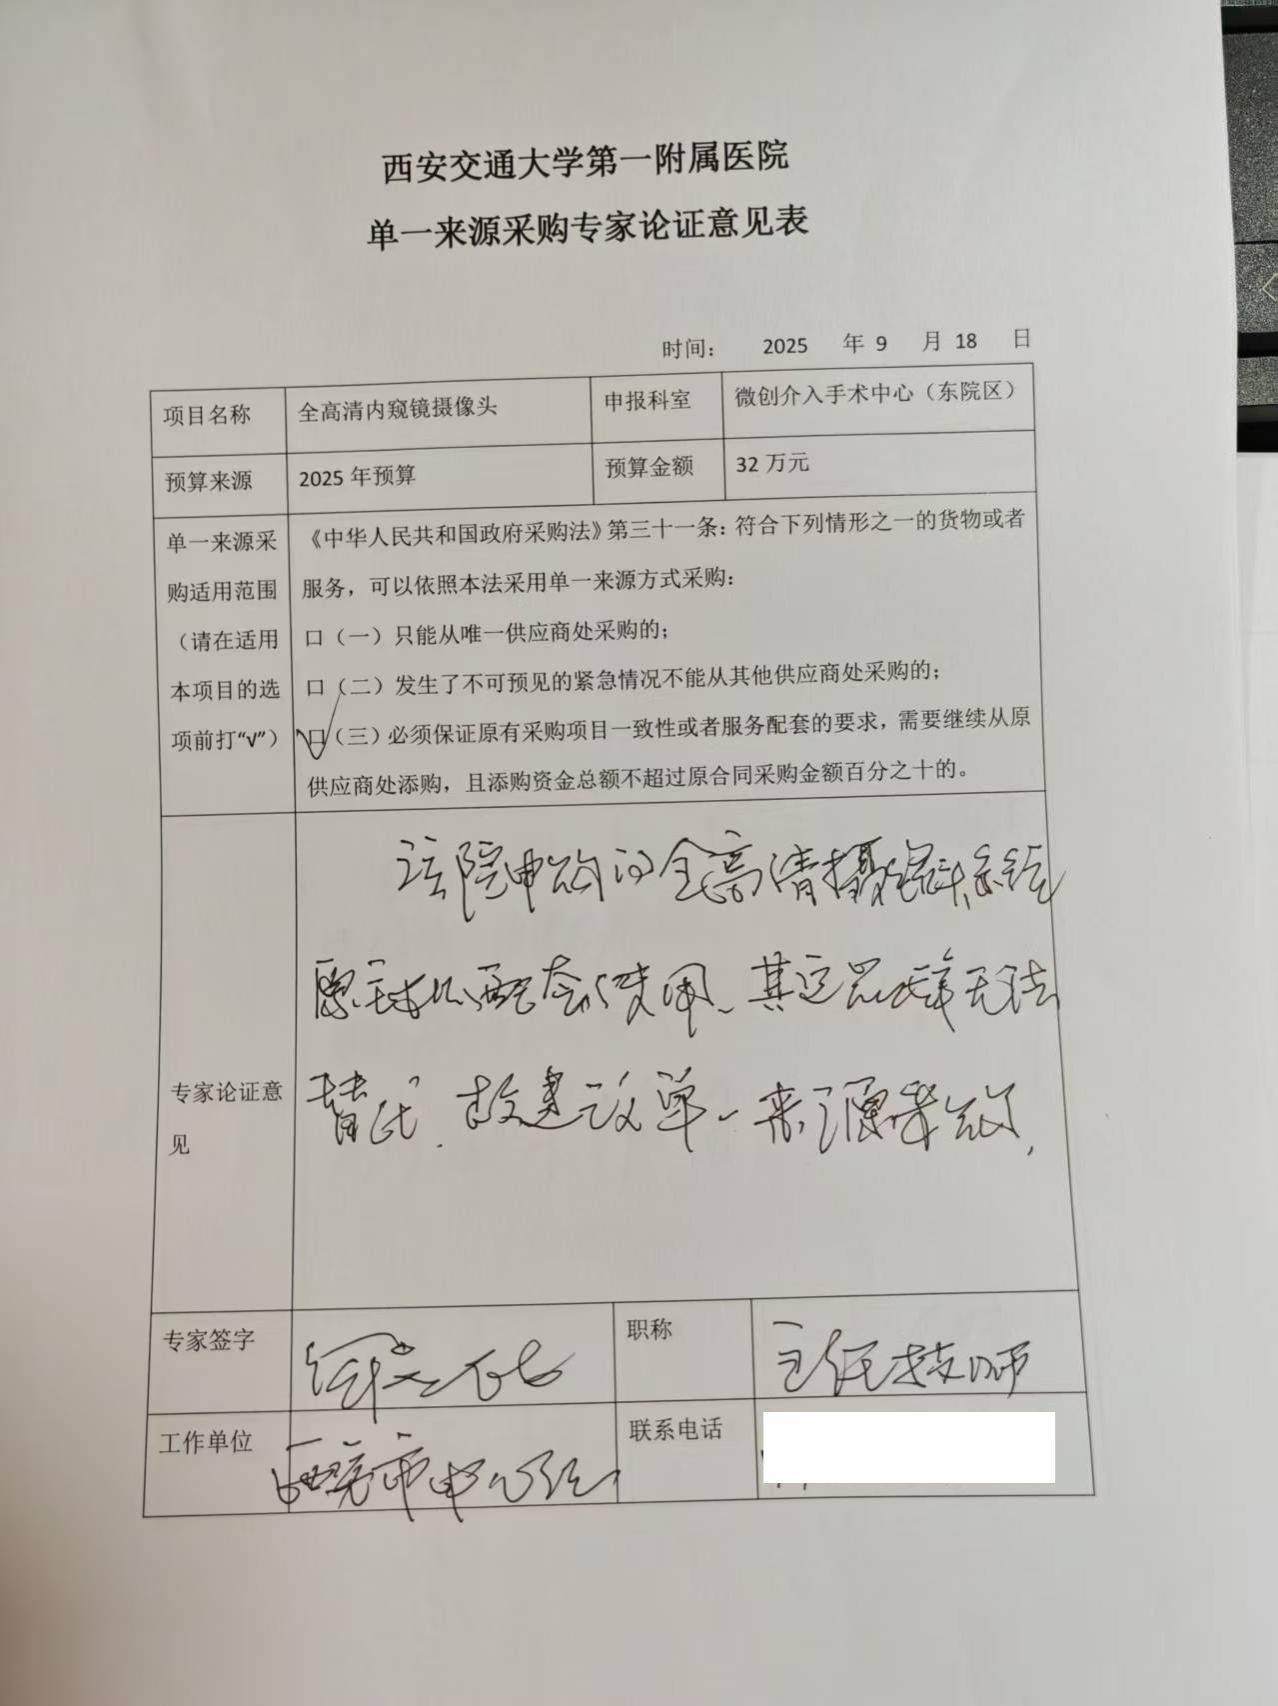 西安交通大学第一附属医院
单一来源采购专家论证意见表
时间： 2025 年 9 月 18 日
项目名称 全高清内窥镜摄像头 申报科室 微创介入手术中心（东院区）
预算来源 2025 年预算 预算金额 32 万元
单一来源采购适用范围（请在适用本项目的选项前打“√”）
《中华人民共和国政府采购法》第三十一条：符合下列情形之一的货物或者
服务，可以依照本法采用单一来源方式采购：
口（一）只能从唯一供应商处采购的；
口（二）发生了不可预见的紧急情况不能从其他供应商处采购的；
√口（三）必须保证原有采购项目一致性或者服务配套的要求，需要继续从原
供应商处添购，且添购资金总额不超过原合同采购金额百分之十的。
专家论证意见
该院申购的全高清摄像头系统
原主机配套使用、其它品牌无法
替代．故建议单一来源采购，
专家签字 职称 主任技师
工作单位 西安市中心医院 联系电话